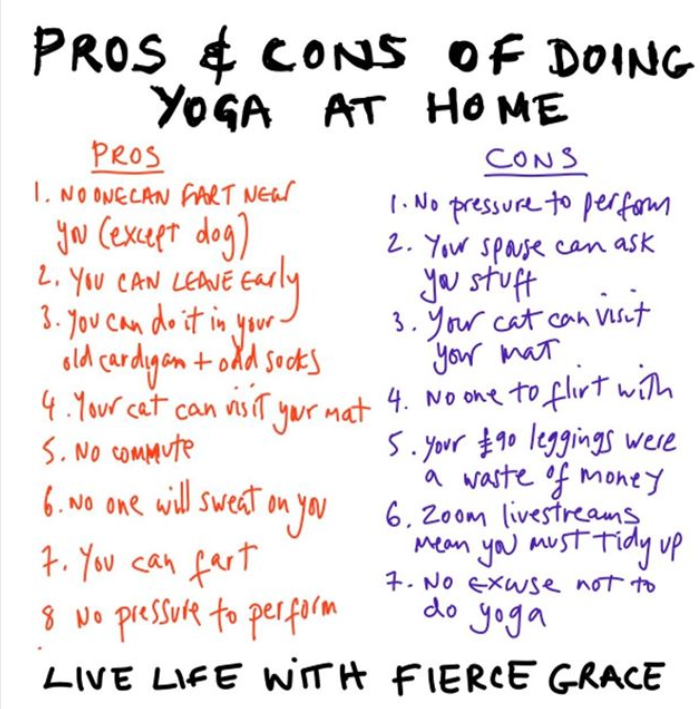 PROS & CONS OF DOING
YOGA AT HOME
PROS
1. NO ONE CAN FART NEAR
YOU (EXCEPT dog)
2. YOU CAN LEAVE Early
3. You can do it in your
old cardigan + odd socks
4. Your cat can visit your mat
5. No commute
6. No one will sweat on you
7. You can fart
8 No pressure to perform
CONS
1. No pressure to perform
2. Your spouse can ask
you stuff
3. Your cat can visit
your mat
4. No one to flirt with
5. your £90 leggings were
a waste of money
6. Zoom livestreams
mean you must tidy up
7. No excuse not to
do yoga
LIVE LIFE WITH FIERCE GRACE